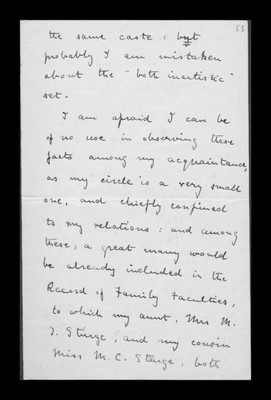 63
the same caste ; but
probably I am mistaken
about the "both inartistic"
set.
I am afraid I can be
of no use in observing these
facts among my acquaintance,
as my circle is a very small
one, and chiefly confined
to my relations : and among
these, a great many would
be already included in the
Record of Family Faculties,
to which my aunt, Mrs M.
J. Sturge, and my cousin
Miss M. C. Sturge, both